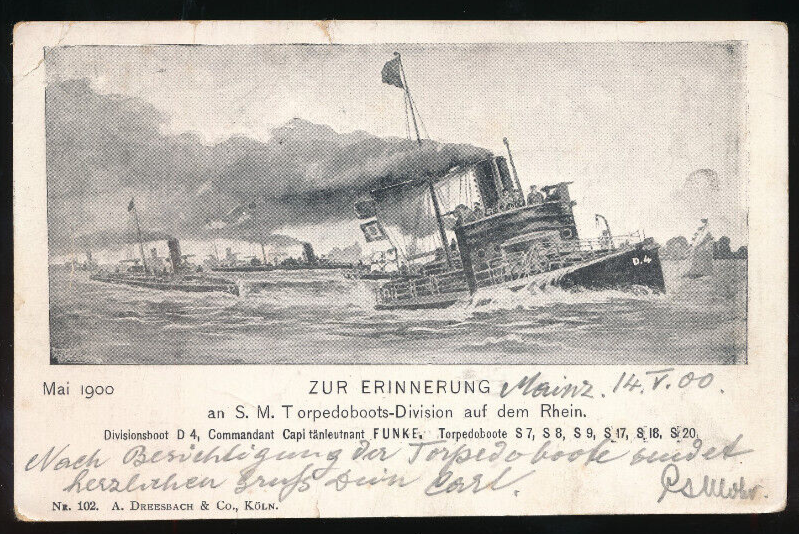 D.4
Mai 1900
ZUR ERINNERUNG Mainz. 14.V.00.
an S. M. Torpedoboots-Division auf dem Rhein.
Divisionsboot D 4, Commandant Capitänleutnant FUNKE. Torpedoboote S 7, S 8, S 9, S 17, S 18, S 20.
Nach Besichtigung der Torpedoboote sendet
herzlichen Gruß Dein Carl.
Nr. 102. A. Dreesbach & Co., Köln.